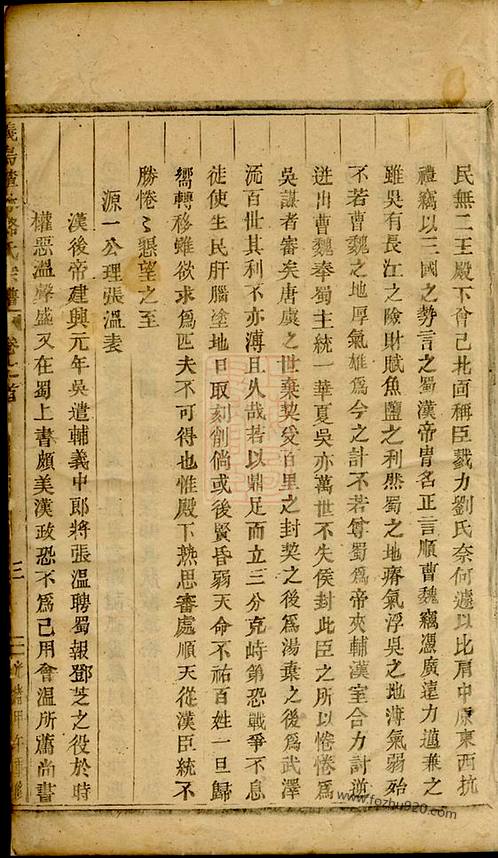 民無二王殿下會己北面稱臣戮力劉氏奈何遽以比肩中原東西抗
禮竊以三國之勢言之蜀漢帝胄名正言順曹魏竊憑廣遠力邁兼之
雖吳有長江之險財賦魚鹽之利然蜀之地瘠氣浮吳之地薄氣弱始
不若曹魏之地厚氣雄爲今之計不若尊蜀爲帝夾輔漢室合力討逆
迸出曹魏奉蜀主統一華夏吳亦萬世不失侯封此臣之所以惓惓爲
吳謀者審矣唐虞之世棄契受百里之封契之後爲湯棄之後爲武澤
流百世其利不亦溥且久哉若以鼎足而立三分克峙第恐戰爭不息
徒使生民肝腦塗地日取刻削倘或後賢昏弱天命不祐百姓一旦歸
嚮轉移雖欲求爲匹夫不可得也惟殿下熟思審處順天從漢臣統不
勝惓〻懇望之至
源一公理張溫表
漢後帝建興元年吳遣輔義中郎將張溫聘蜀報鄧芝之役於時
權惡溫聲盛又在蜀上書頗美漢政恐不爲己用會溫所薦尚書
義烏 駱氏宗譜
卷之首
三
www.fozhu920.com